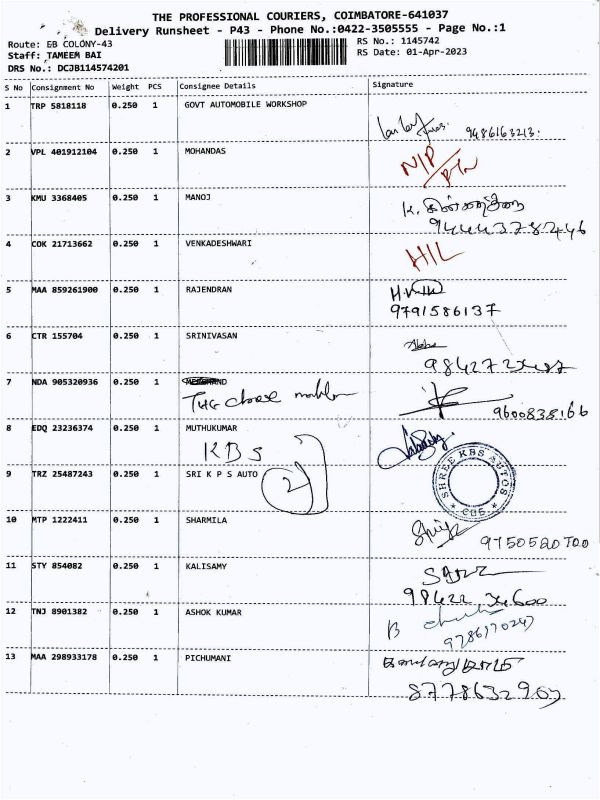 THE PROFESSIONAL COURIERS, COIMBATORE-641037
Delivery Runsheet - P43 - Phone No.:0422-3505555 - Page No.:1
Route: EB COLONY-43
RS No.: 1145742
Staff: TAMEEM BAI
RS Date: 01-Apr-2023
DRS No.: DCJB114574201
S No Consignment No Weight PCS Consignee Details Signature
1 TRP 5818118 0.250 1 GOVT AUTOMOBILE WORKSHOP
9486163213
2 VPL 401912104 0.250 1 MOHANDAS
N/P
3 KMU 3368405 0.250 1 MANOJ
9444378246
4 COK 21713662 0.250 1 VENKADESHWARI
H/L
5 MAA 859261900 0.250 1 RAJENDRAN
9791586137
6 CTR 155704 0.250 1 SRINIVASAN
7 NDA 905320936 0.250 1
9600838166
8 EDQ 23236374 0.250 1 MUTHUKUMAR
KBS
9 TRZ 25487243 0.250 1 SRI K P S AUTO
2
SHREE KBS AUTOS
CBE
10 MTP 1222411 0.250 1 SHARMILA
9750520700
11 STY 854082 0.250 1 KALISAMY
12 TNJ 8901382 0.250 1 ASHOK KUMAR
B
9786170247
13 MAA 298933178 0.250 1 PICHUMANI